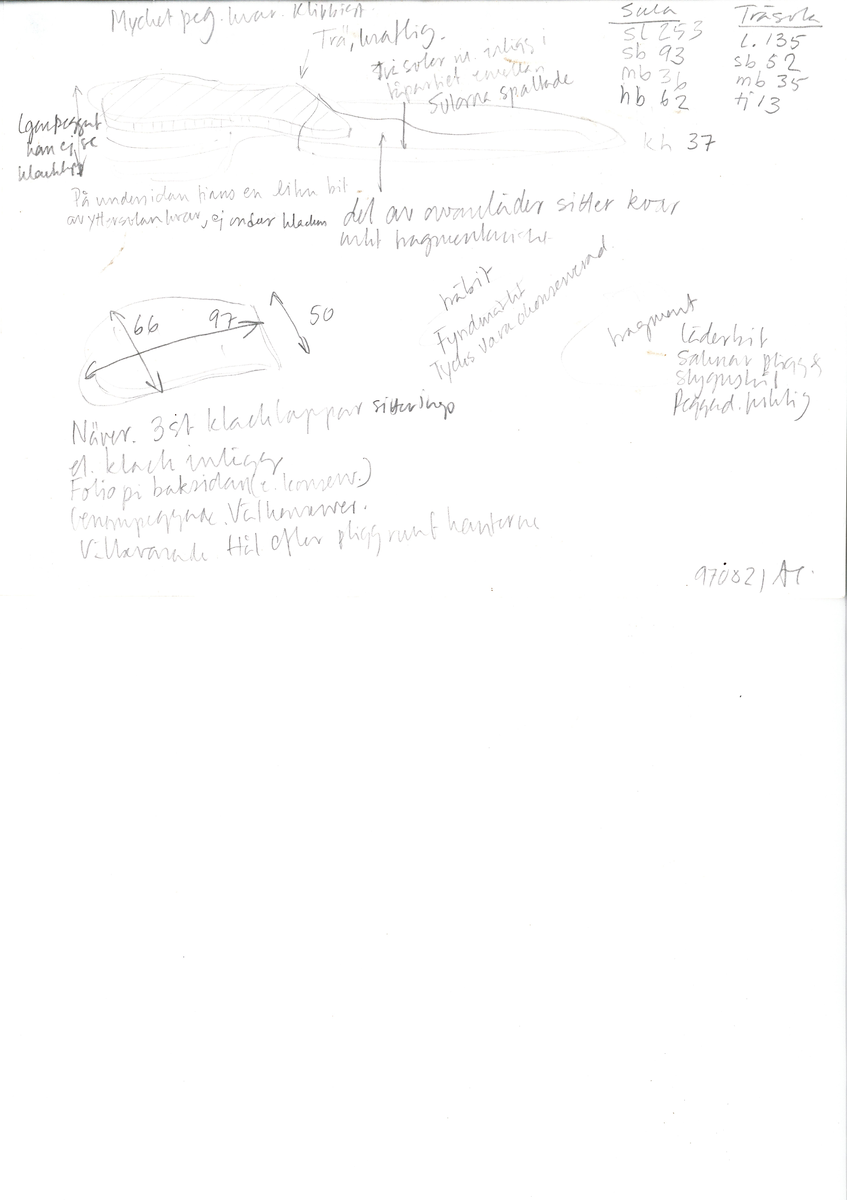 Mychet peg. kvar. Klibbigt.
Trä, kraftig.
två solor m. inlägg i
tåpartiet emellan
Sulorna spaltade
Sula
sl 253
sb 93
mb 36
hb 62
Träsola
l. 135
sb 52
mb 35
tj 13
kh 37
Genompeggat
kan ej se
På undersidan finns en liten bit
av yttersolan kvar, ej under klacken
del av ovanläder sitter kvar
mkt fragmentariskt
66
97
50
träbit
Fyndmärkt
Tycks vara okonserverad
fragment
läderbit
saknar pligg &
stygnshål
Peggad. push
Näver. 3 st klacklappar sitter ihop
el. klack inlägg
Folie på baksidan (e. konserv.)
Genompeggade.
Välbevarade. Hål efter pligg runt kanterne
970821 AC.